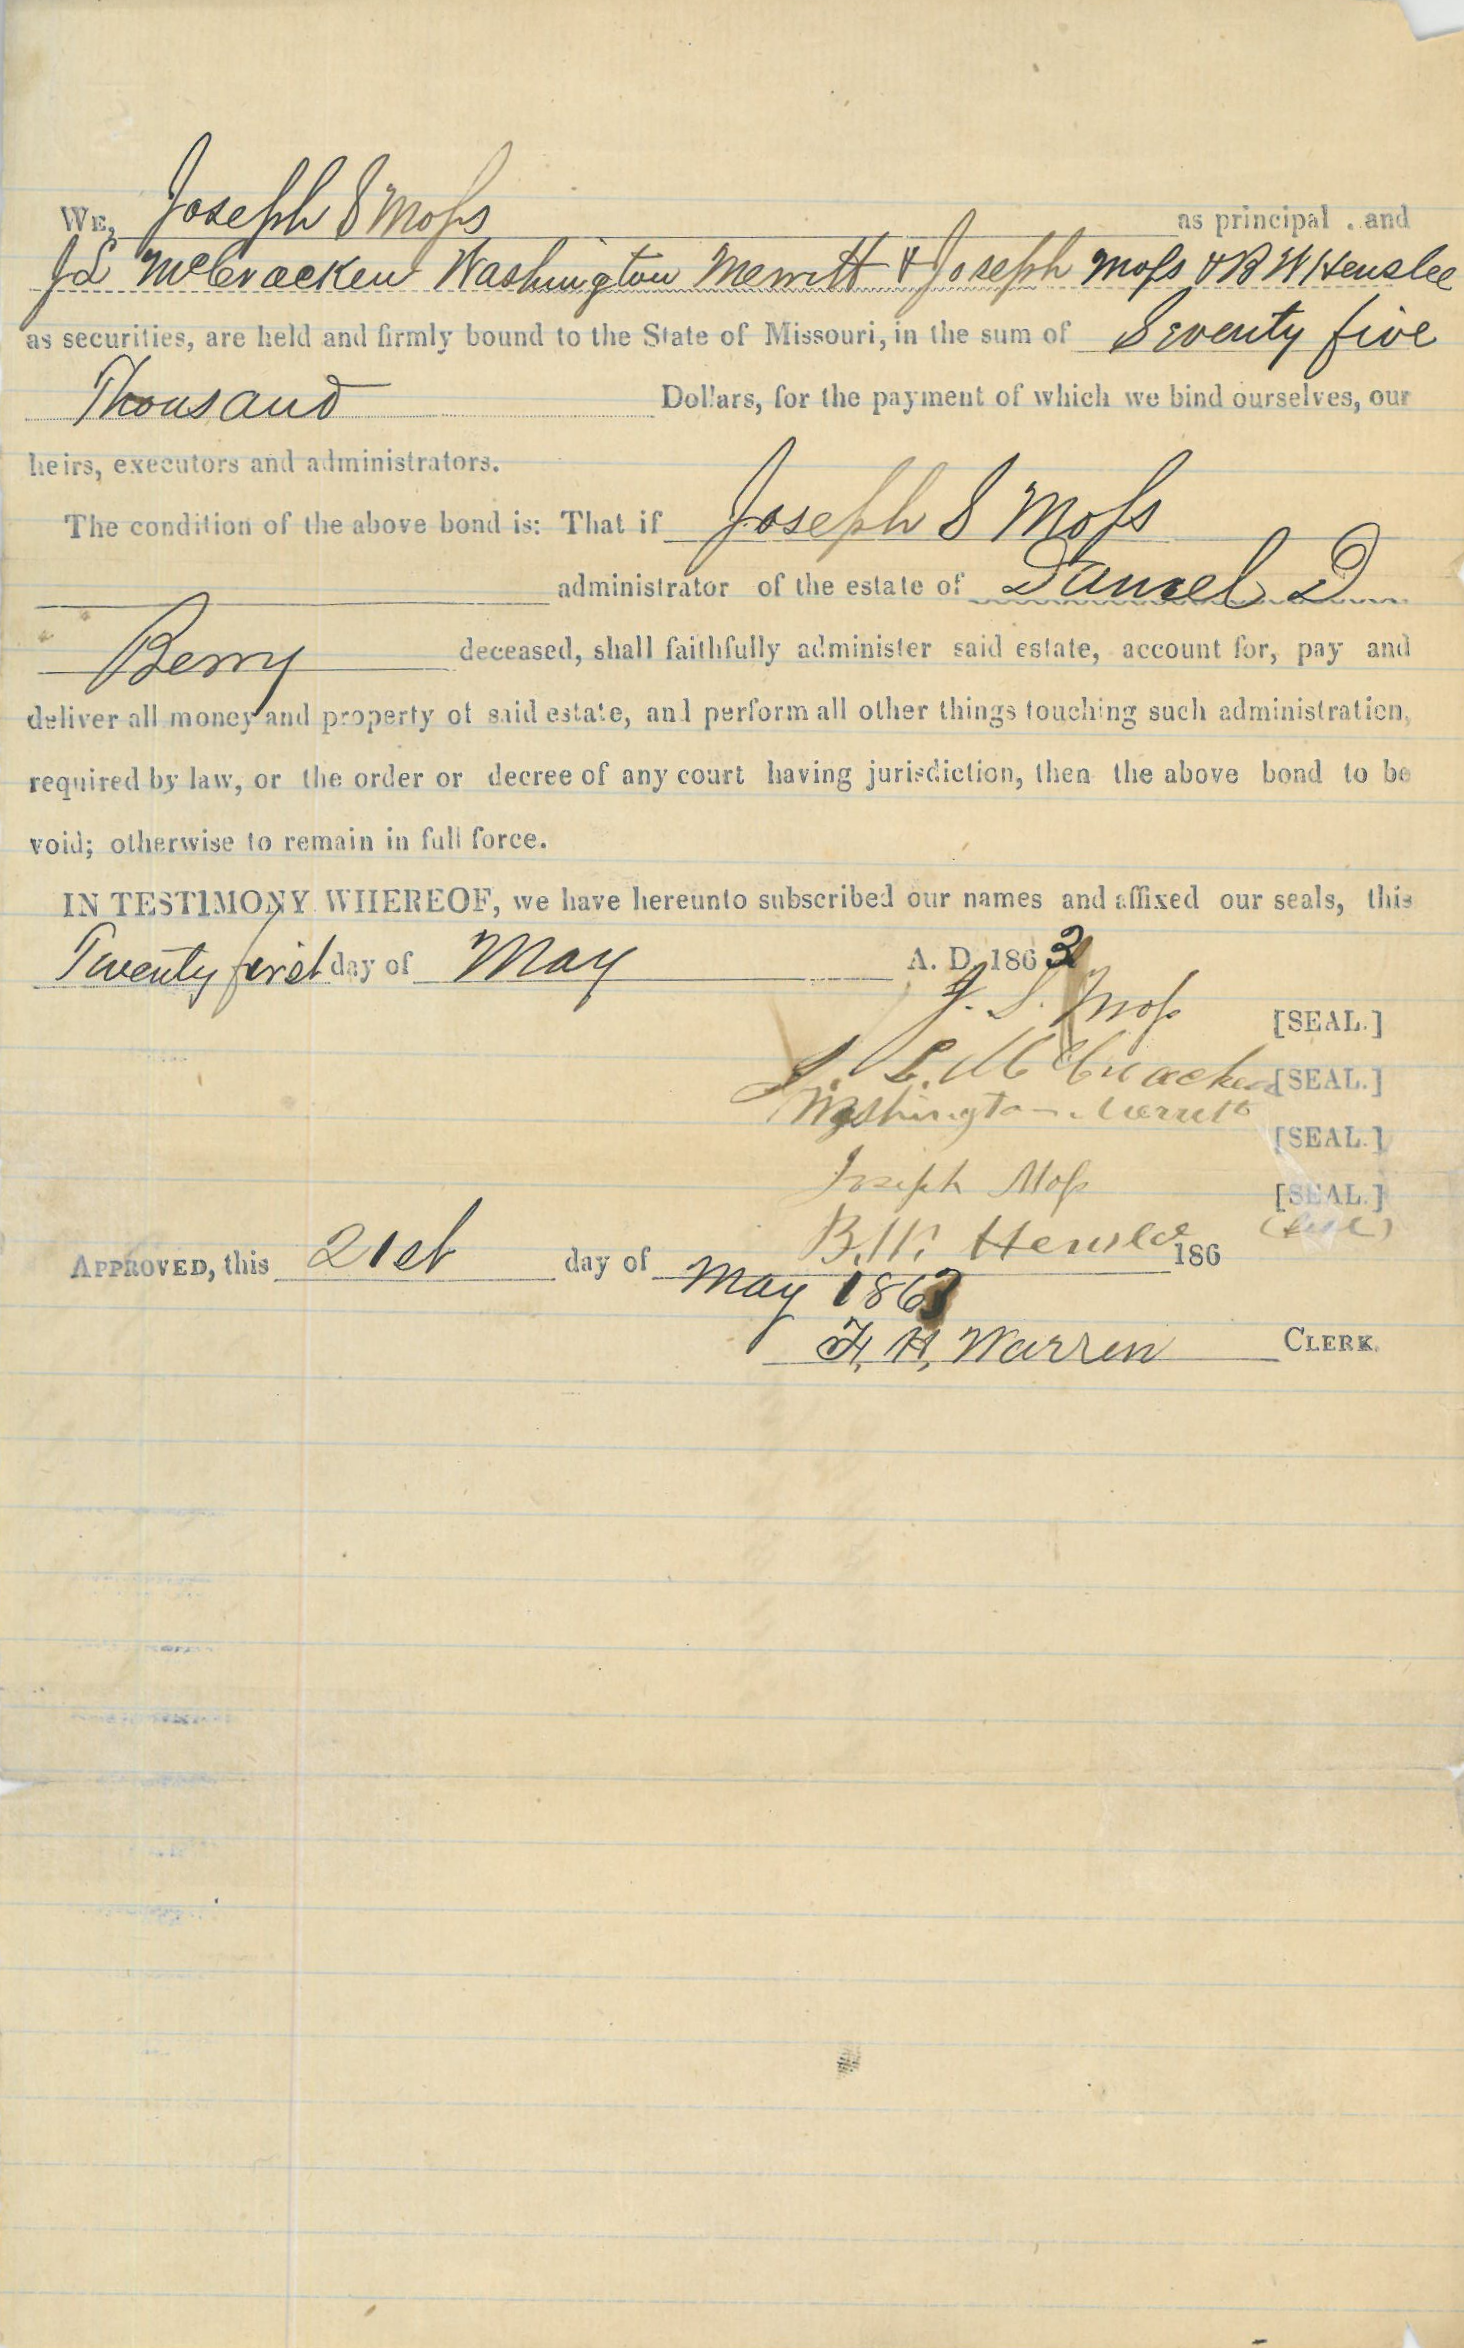 WE, Joseph S Moss as principal . and
J L McCracken Washington Merritt & Joseph Moss & B W Henslee
as securities, are held and firmly bound to the State of Missouri, in the sum of Seventy five
Thousand Dollars, for the payment of which we bind ourselves, our
heirs, executors and administrators.
The condition of the above bond is: That if Joseph S Moss
administrator of the estate of Daniel D
Berry deceased, shall faithfully administer said estate, account for, pay and
deliver all money and property of said estate, and perform all other things touching such administration,
required by law, or the order or decree of any court having jurisdiction, then the above bond to be
void; otherwise to remain in full force.
IN TESTIMONY WHEREOF, we have hereunto subscribed our names and affixed our seals, this
Twenty first day of May A. D. 1863
J. S. Moss [SEAL.]
J. L. McCracken [SEAL.]
Washington Merritt [SEAL.]
Joseph Moss [SEAL.]
B. W. Henslee (seal)
APPROVED, this 21st day of 186
May 1863
F. H. Warren CLERK.